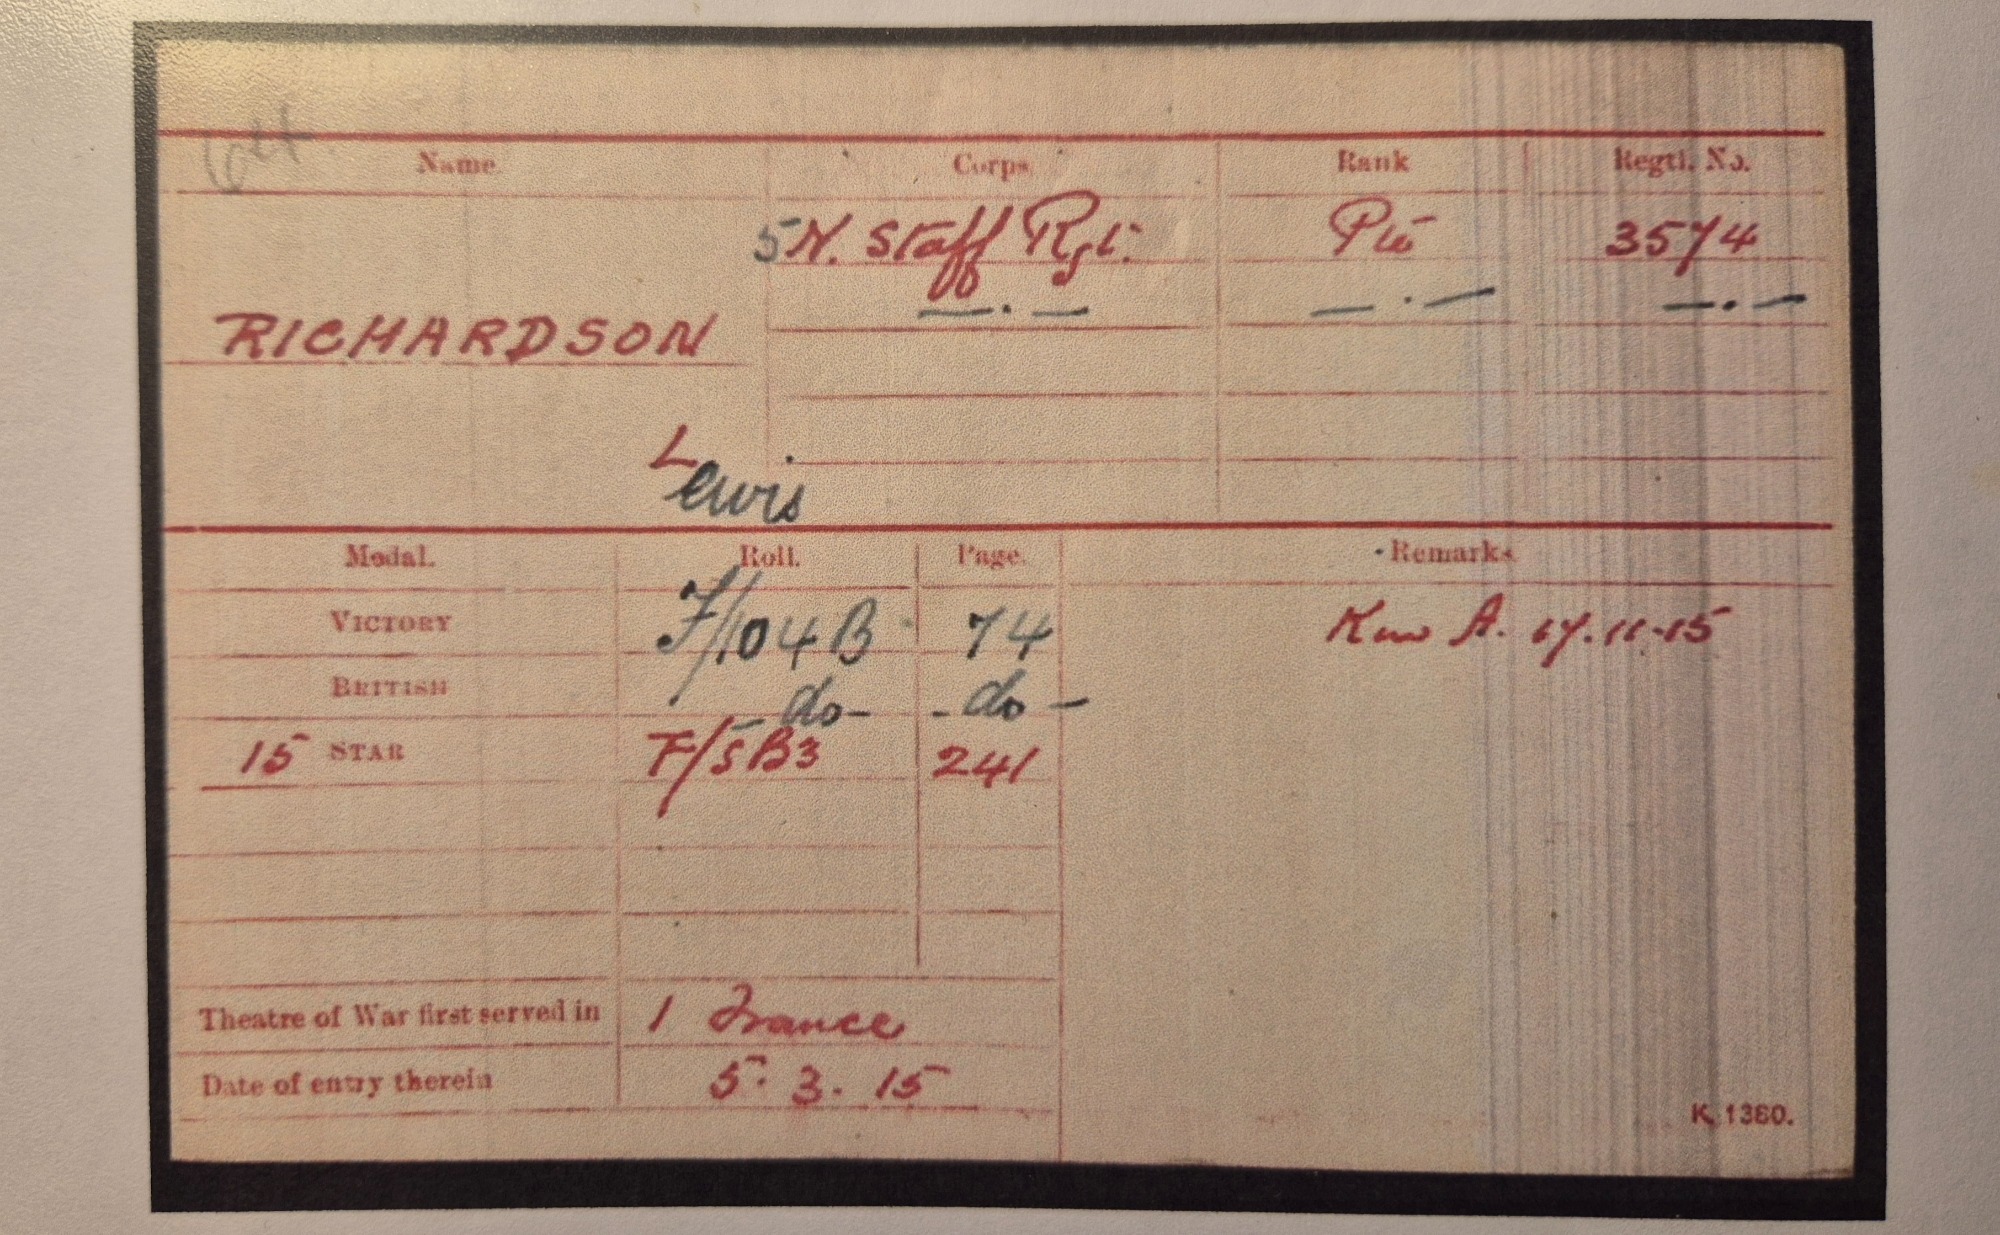 Name. Corps. Rank Regtl. No.
5 N. Staff Rgt. Pte 3574
— . — — . — — . —
RICHARDSON
Lewis
Medal. Roll. Page. Remarks.
VICTORY F/104B 74 K in A. 17.11.15
BRITISH do- -do-
15 STAR F/5B3 241
Theatre of War first served in 1 France
Date of entry therein 5. 3. 15
K. 1380.